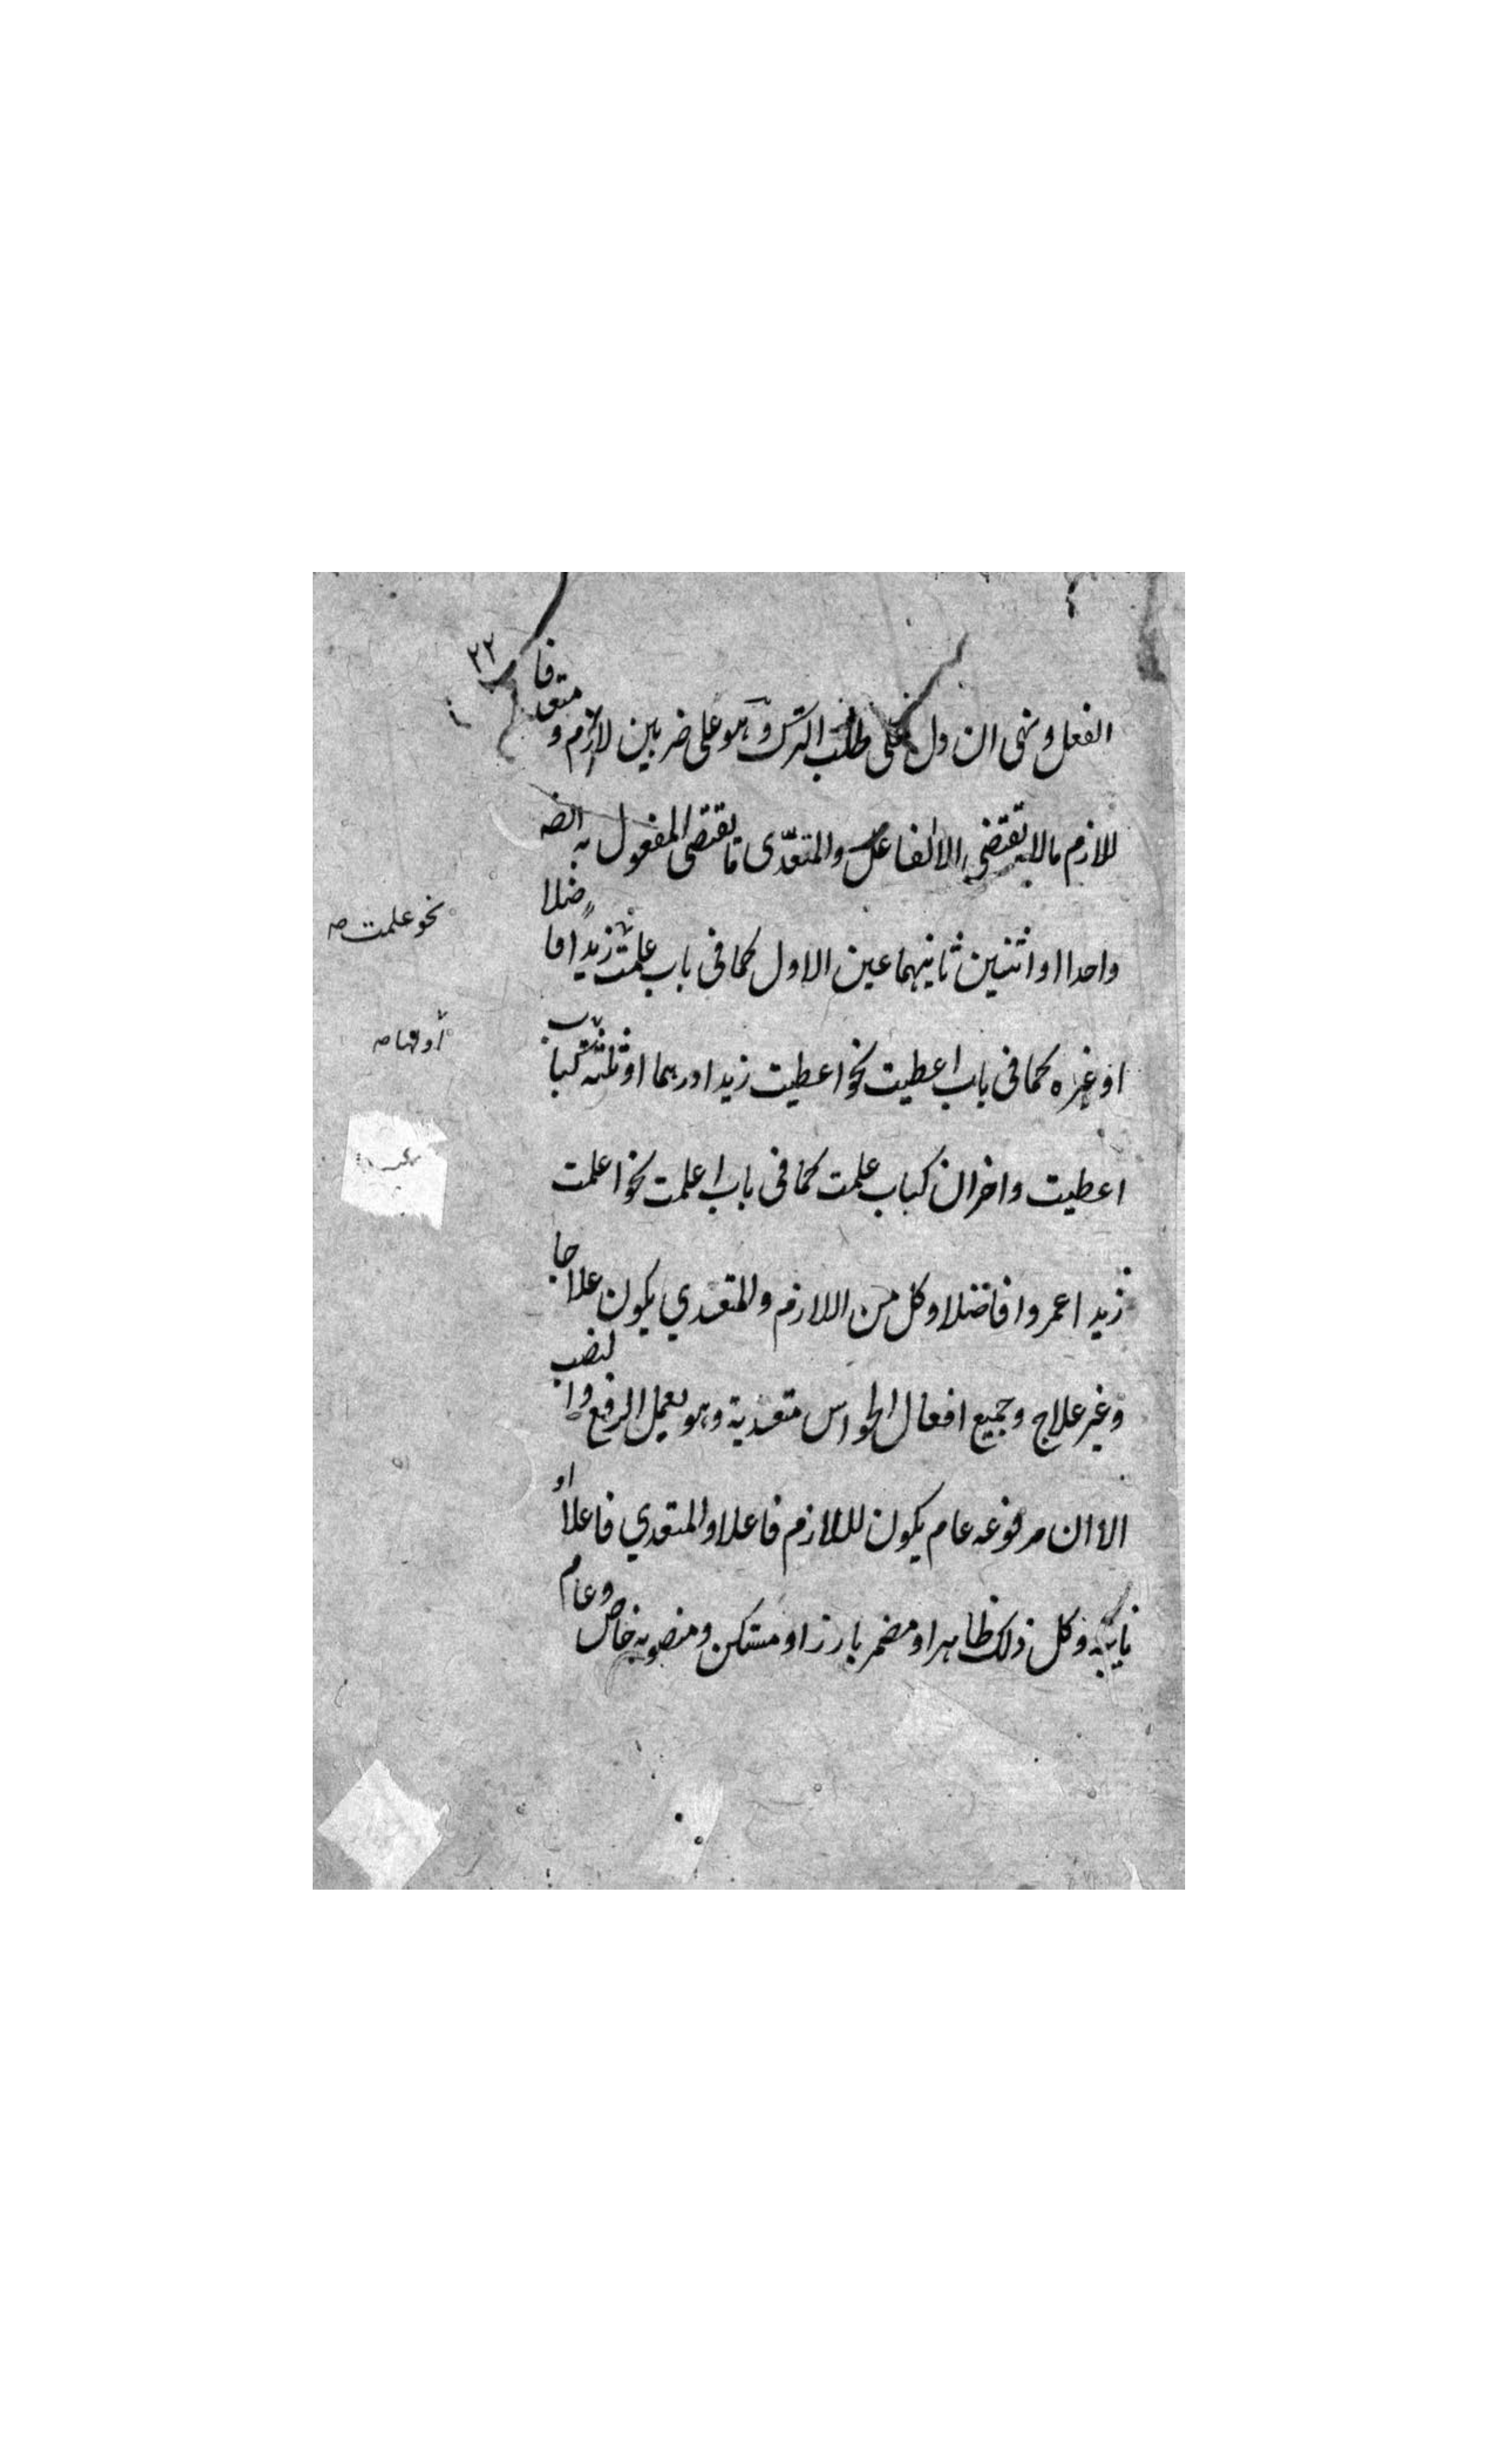 ٢٢
الفعل ونهى ان دل على طلب الترك وهو على ضربين لازم و متعد فا
للازم مالا يقتضى الا الفاعل والمتعدى ما يقتضى المفعول به ايضا
واحدا او اثنين ثانيهما عين الاول كما فى باب علمت زيدا فا ضلا
نحو علمت صه
او غيره كما فى باب اعطيت نحو اعطيت زيدا درهما او ثلثة كبا ب
اعطيت واخران كباب علمت كما فى باب اعلمت نحو اعلمت
زيدا عمروا فاضلا وكل من اللازم والمتعدي يكون علا جا
وغير علاج وجميع افعال الحواس متعدية وهو يعمل الرفع وا لنصب
الا ان مرفوعه عام يكون لللازم فاعلا والمتعدي فاعلا او
نايبه وكل ذلك ظاهرا ومضمر بارز او مستكن ومنصوبه خاص وعام